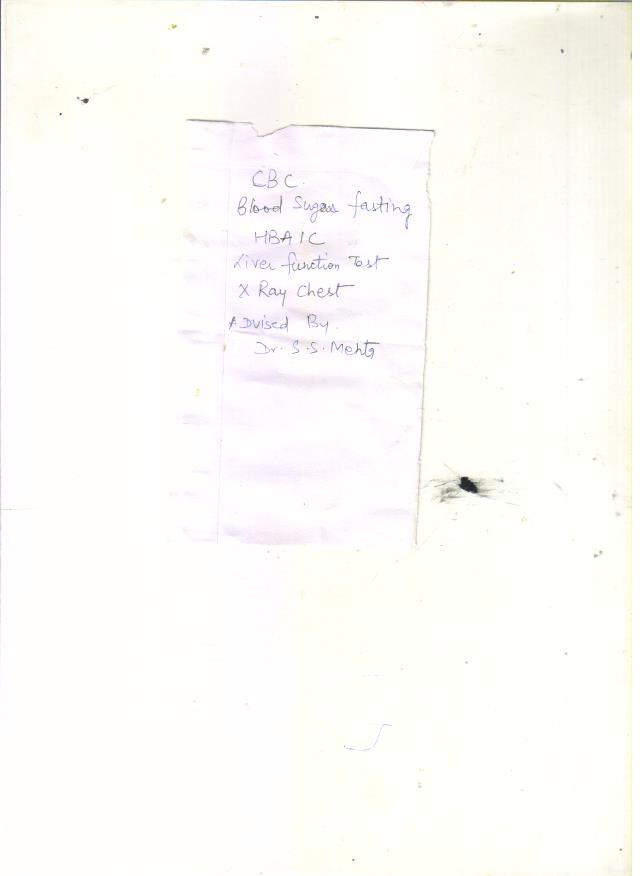 CBC.
Blood Sugar fasting
HBA1C
Liver function Test
X Ray Chest
ADvised By.
Dr. S.S. Mehta